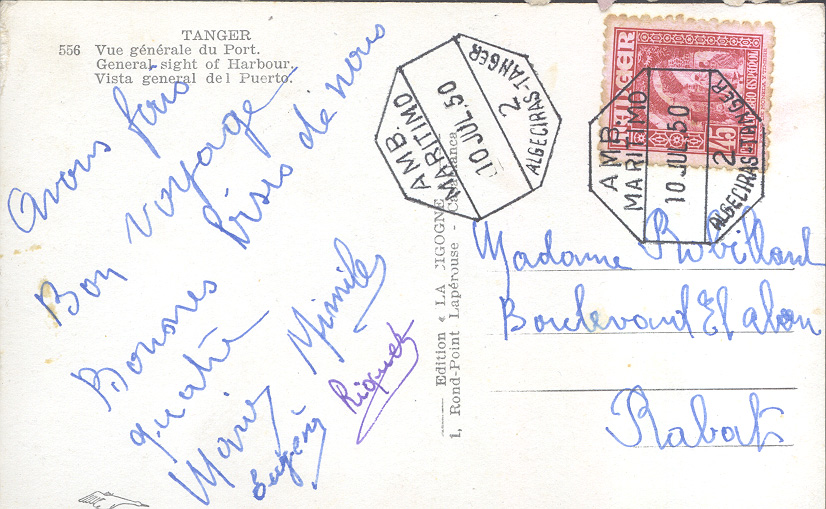 TANGER
556 Vue générale du Port.
General sight of Harbour.
Vista general del Puerto.
Avons fais
Bon voyage
Bonnes bises de nous
quatre
Marie Mimile
Eugène Riquet
Edition « LA CIGOGNE
1, Rond-Point Lapérouse - Casablanca
AMB.
MARITIMO
10 JUL.50
2
ALGECIRAS-TANGER
TANGER
45
AMB.
MARITIMO
10 JUL.50
2
ALGECIRAS-TANGER
Madame Robillard
Boulevard El
Rabat